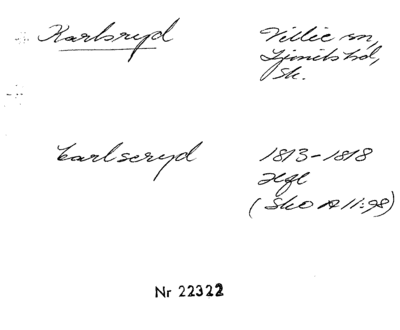 Karlsryd
Villie sn,
Ljunits hd,
Sk.
Carlseryd
1813-1818
Hfl
(SkO A 11:98)
Nr 22322